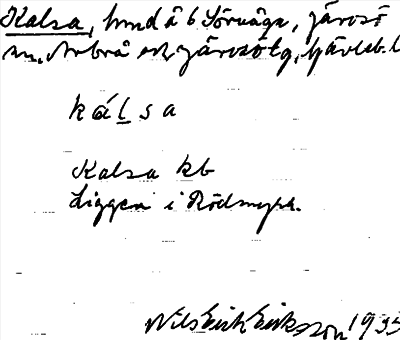 Kalsa, hmd å 6 Sörvåga, Järvsö
sn, Arbrå och Järvsö tg, Gävleb. l
kálsa
Kalsa kb
Ligger i Rödmyra.
Nils Erik Eriksson 1935